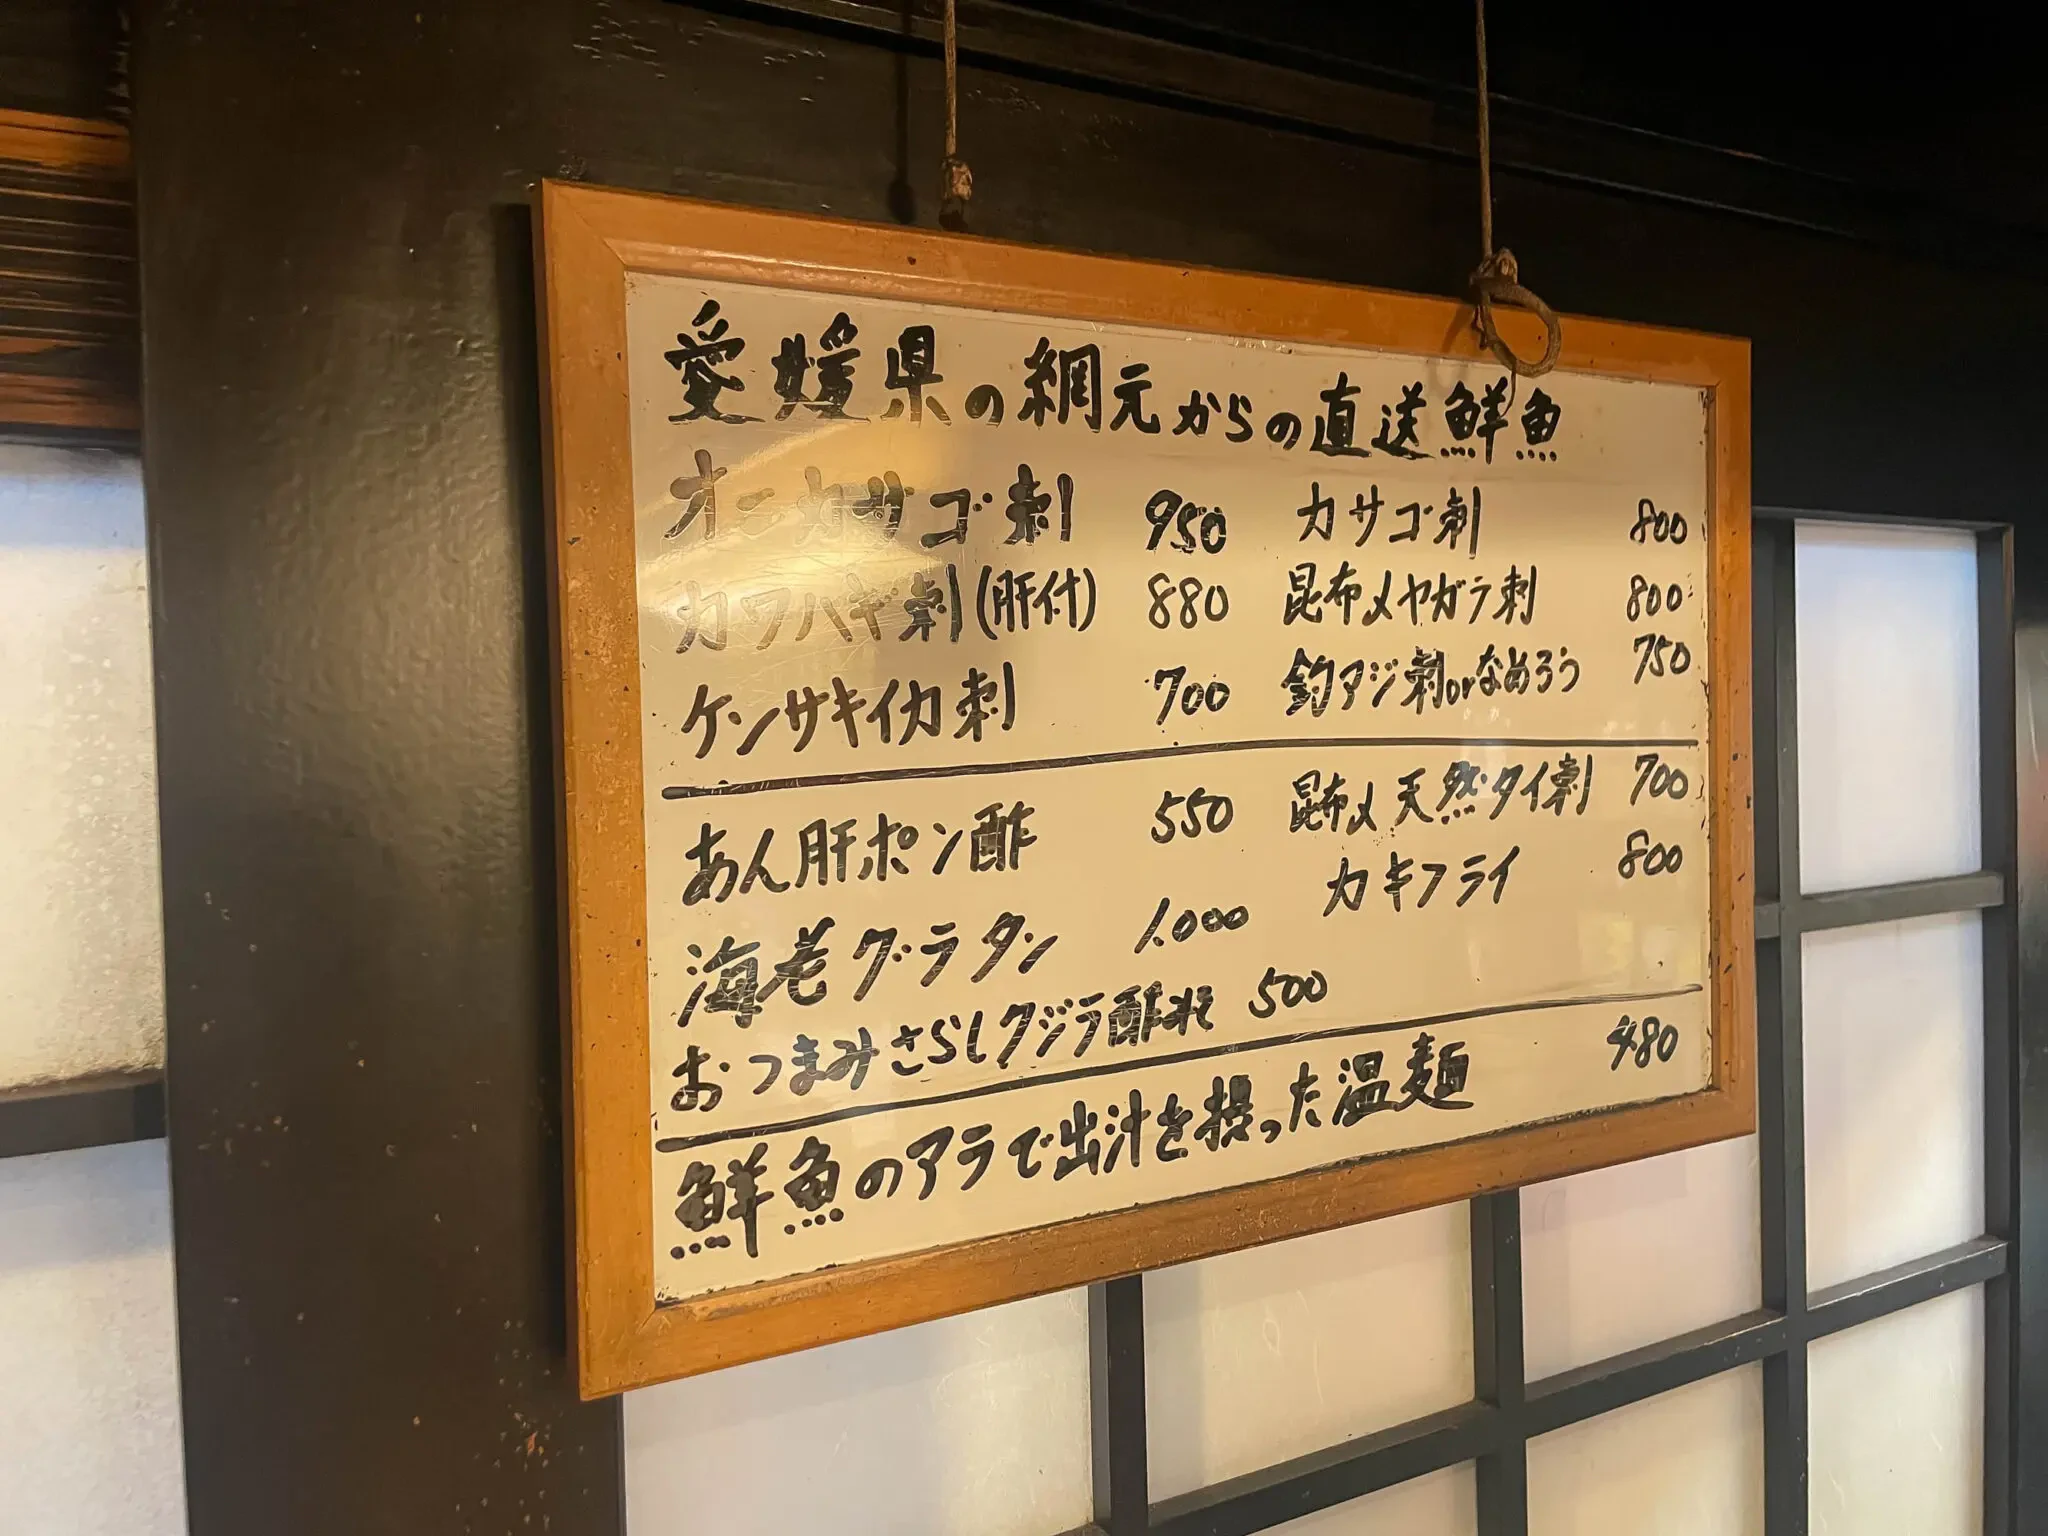 愛媛県の網元からの直送鮮魚
オニカサゴ刺 950 カサゴ刺 800
カワハギ刺(肝付) 880 昆布〆ヤガラ刺 800
ケンサキイカ刺 700 釣アジ刺orなめろう 750
あん肝ポン酢 550 昆布〆天然タイ刺 700
海老グラタン 1.000 カキフライ 800
おつまみさらしクジラ酢みそ 500
鮮魚のアラで出汁を撮った温麺 480